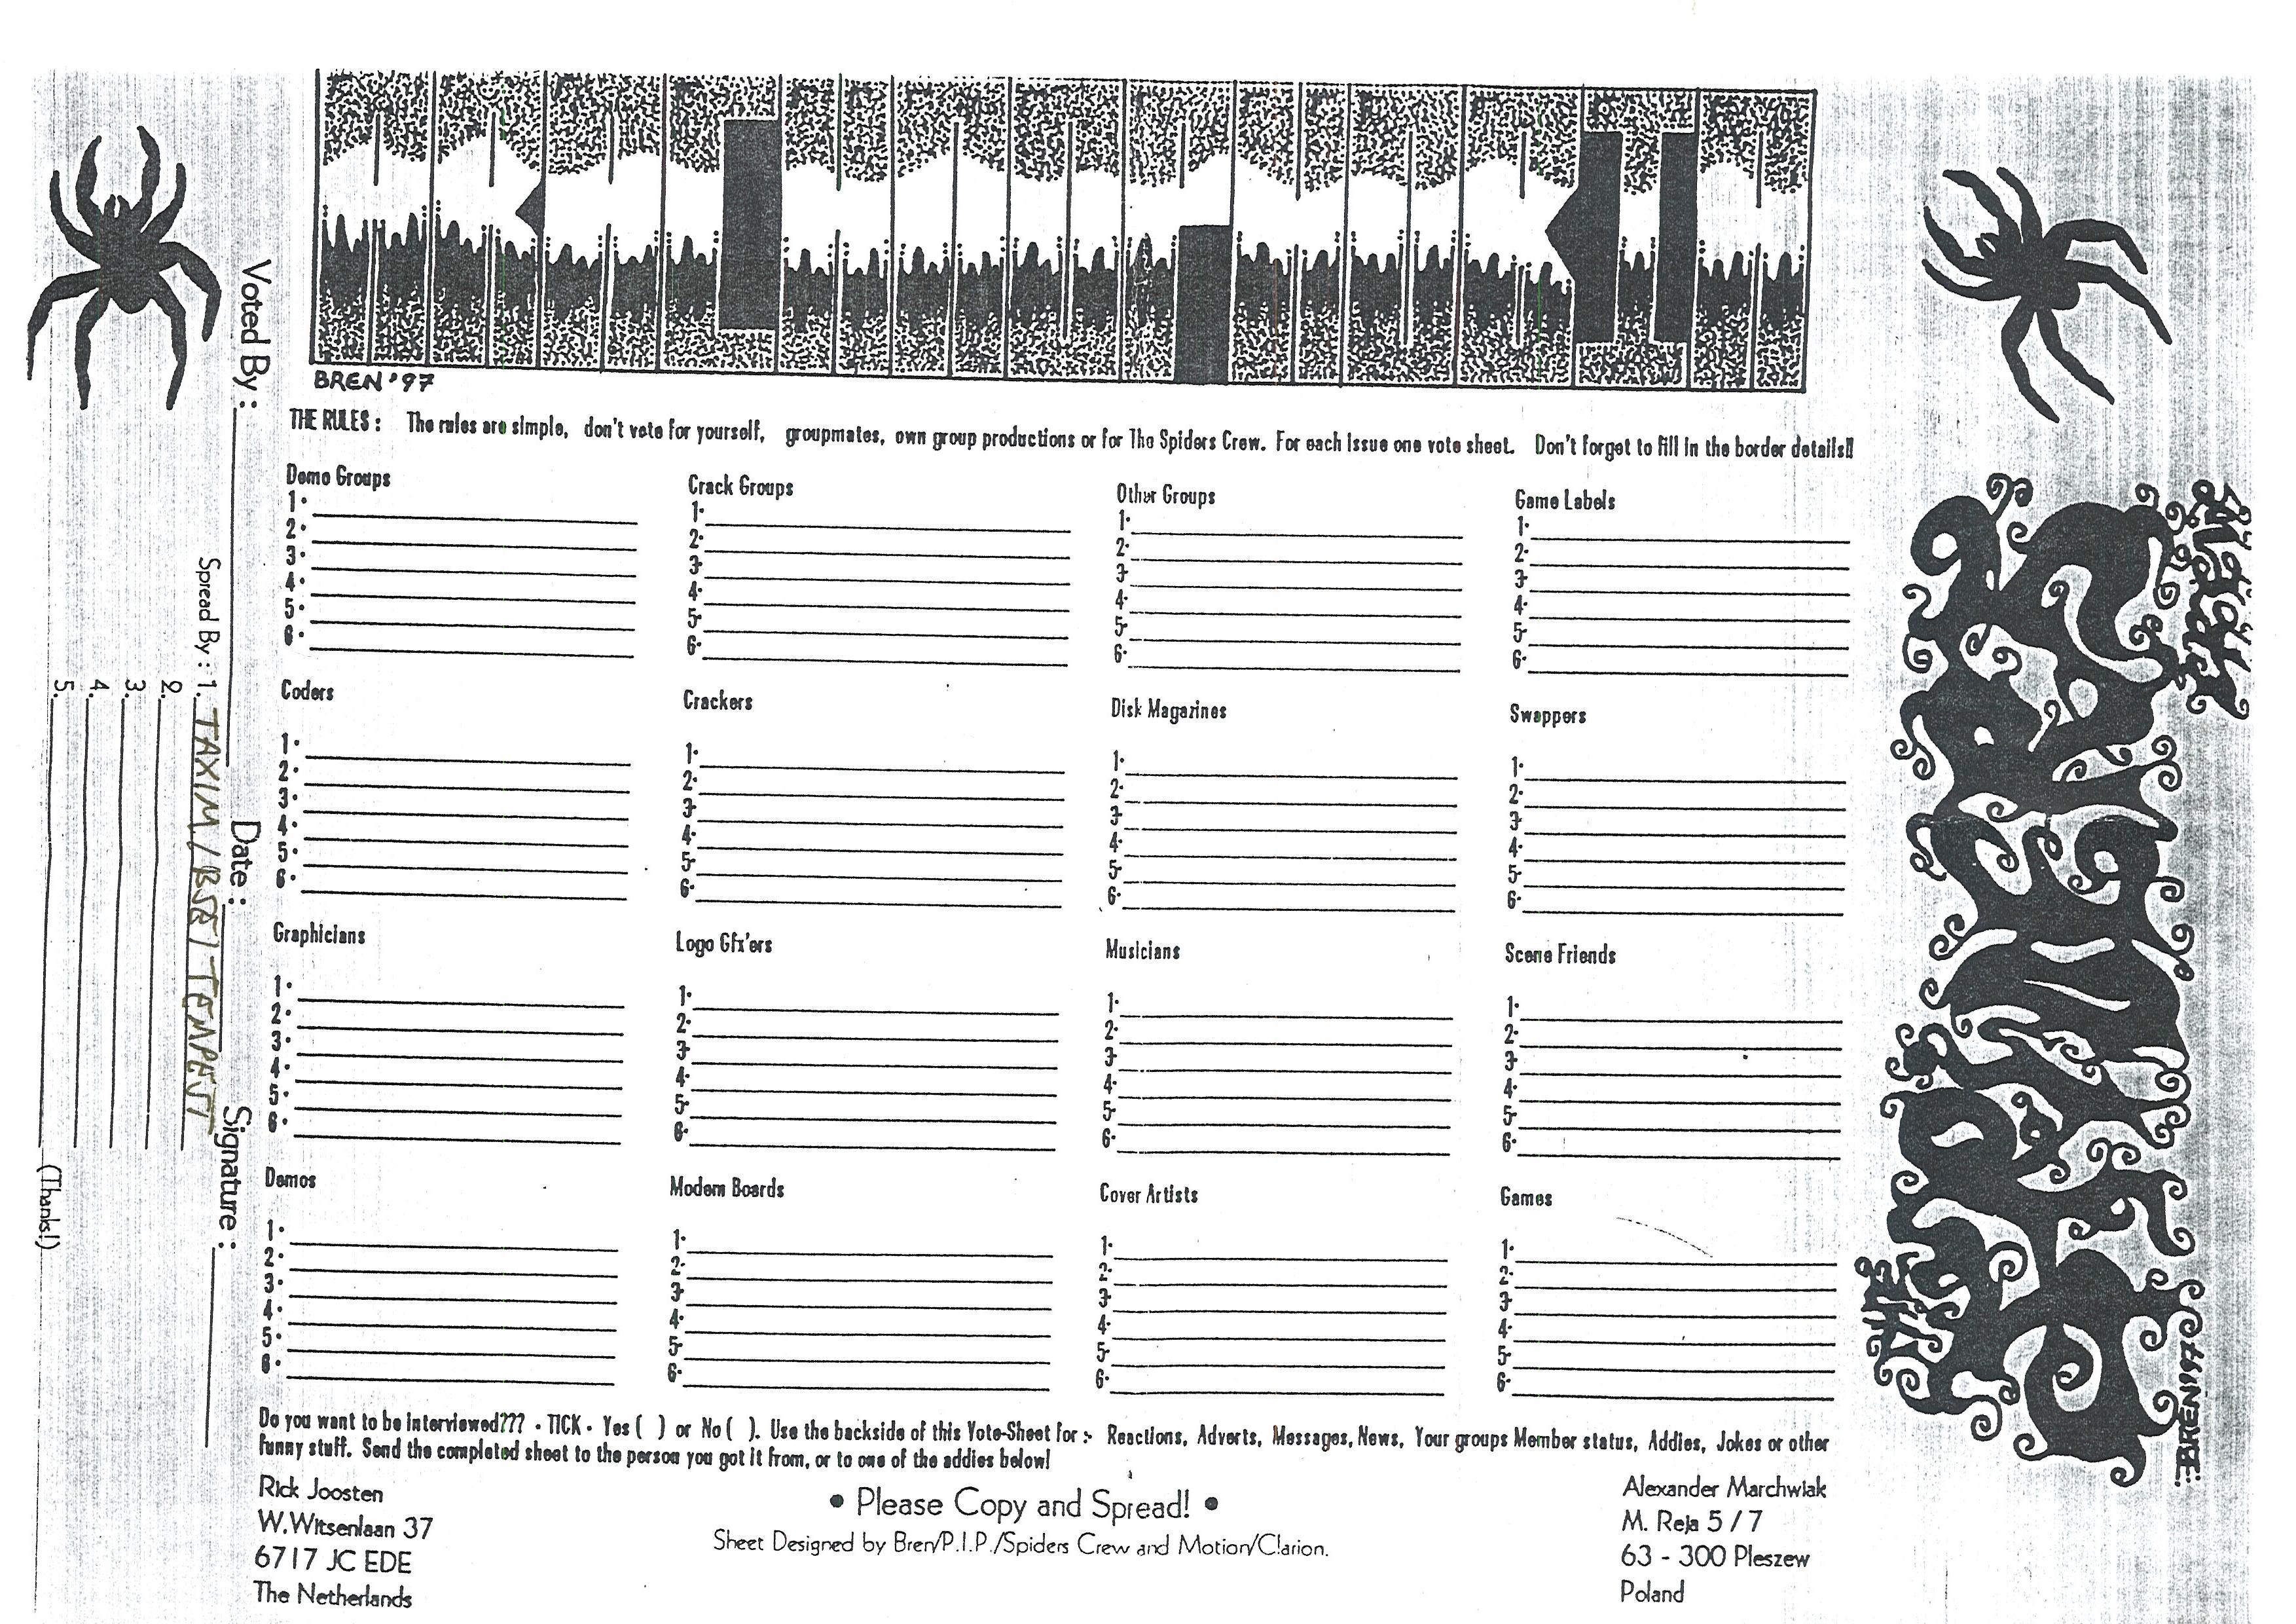 BREN '97
THE RULES : The rules are simple, don't vote for yourself, groupmates, own group productions or for The Spiders Crew. For each issue one vote sheet. Don't forget to fill in the border details!!
Demo Groups
1.
2.
3.
4.
5.
6.
Crack Groups
1.
2.
3.
4.
5.
6.
Other Groups
1.
2.
3.
4.
5.
6.
Game Labels
1.
2.
3.
4.
5.
6.
Coders
1.
2.
3.
4.
5.
6.
Crackers
1.
2.
3.
4.
5.
6.
Disk Magazines
1.
2.
3.
4.
5.
6.
Swappers
1.
2.
3.
4.
5.
6.
Graphicians
1.
2.
3.
4.
5.
6.
Logo Gfx'ers
1.
2.
3.
4.
5.
6.
Musicians
1.
2.
3.
4.
5.
6.
Scene Friends
1.
2.
3.
4.
5.
6.
Demos
1.
2.
3.
4.
5.
6.
Modem Boards
1.
2.
3.
4.
5.
6.
Cover Artists
1.
2.
3.
4.
5.
6.
Games
1.
2.
3.
4.
5.
6.
Do you want to be interviewed??? - TICK - Yes ( ) or No ( ). Use the backside of this Vote-Sheet for :- Reactions, Adverts, Messages, News, Your groups Member status, Addies, Jokes or other
funny stuff. Send the completed sheet to the person you got it from, or to one of the addies below!
Rick Joosten
W.Witsenlaan 37
6717 JC EDE
The Netherlands
• Please Copy and Spread! •
Sheet Designed by Bren/P.I.P./Spiders Crew and Motion/Clarion.
Alexander Marchwiak
M. Reja 5 / 7
63 - 300 Pleszew
Poland
Voted By :
Date :
Signature :
Spread By : 1. TAXIM / BSB / TEMPEST
2.
3.
4.
5.
(Thanks!)
BREN '97